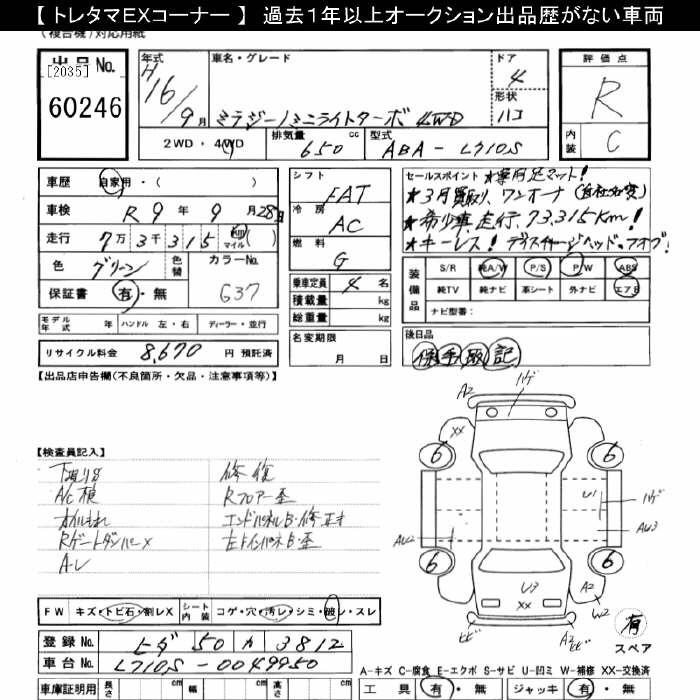 【 トレタマEXコーナー 】 過去1年以上オークション出品歴がない車両
(複合機) 対応用紙
出品No.
[2035]
60246
年式
H16/9月
車名・グレード
ミラジーノミニライトターボ 4WD
ドア
4
形状
ハコ
評価点
R
内装
C
2WD ・ 4WD
排気量
650 cc
型式
ABA-L710S
車歴
自家用・( )
車検
R 9 年 9 月 28日
走行
7万3千315 km マイル ( )
色
グリーン
色替
カラーNo.
G37
保証書
有・無
シフト
FAT
冷房
AC
燃料
G
乗車定員 4 名
積載量 kg
総重量 kg
名変期限
月 日
セールスポイント ★専用足マット!
★3月買取り、ワンオーナー(自社名変)
★希少車 走行73,315Km!
★キーレス!ディスチャージヘッド、フォグ!
装備品
S/R
純A/W
P/S
P/W
ABS
純TV
純ナビ
革シート
外ナビ
エアB
ナビ型番:
モデル年式 年
ハンドル 左・右
ディーラー・並行
後日品
保 手 取 記
リサイクル料金 8,670 円 預託済
【出品店申告欄(不良箇所・欠品・注意事項等)】
【検査員記入】
下廻りS
A/C検
オイルもれ
RゲートダンパーX
A-レ
修復
Rフロアー歪
エンドパネルB・修正オ
左トインパネB・歪
A2
ハゲ
XX
6
6
U1
ハゲ
AU2
AU3
6
6
U3
XX
A2
W2
ヒビ
A2
ヒビ
有
スペア
FW
キズ・トビ石・割レX
シート内装
コゲ・穴・汚レ・シミ・破レ・スレ
登録No. ヒダ 50 カ 3812
車台No. L710S-0049950
A-キズ C-腐食 E-エクボ S-サビ U-凹ミ W-補修 XX-交換済
車庫証明用 長さ cm 幅 cm 高さ cm
工具 有・無
ジャッキ 有・無